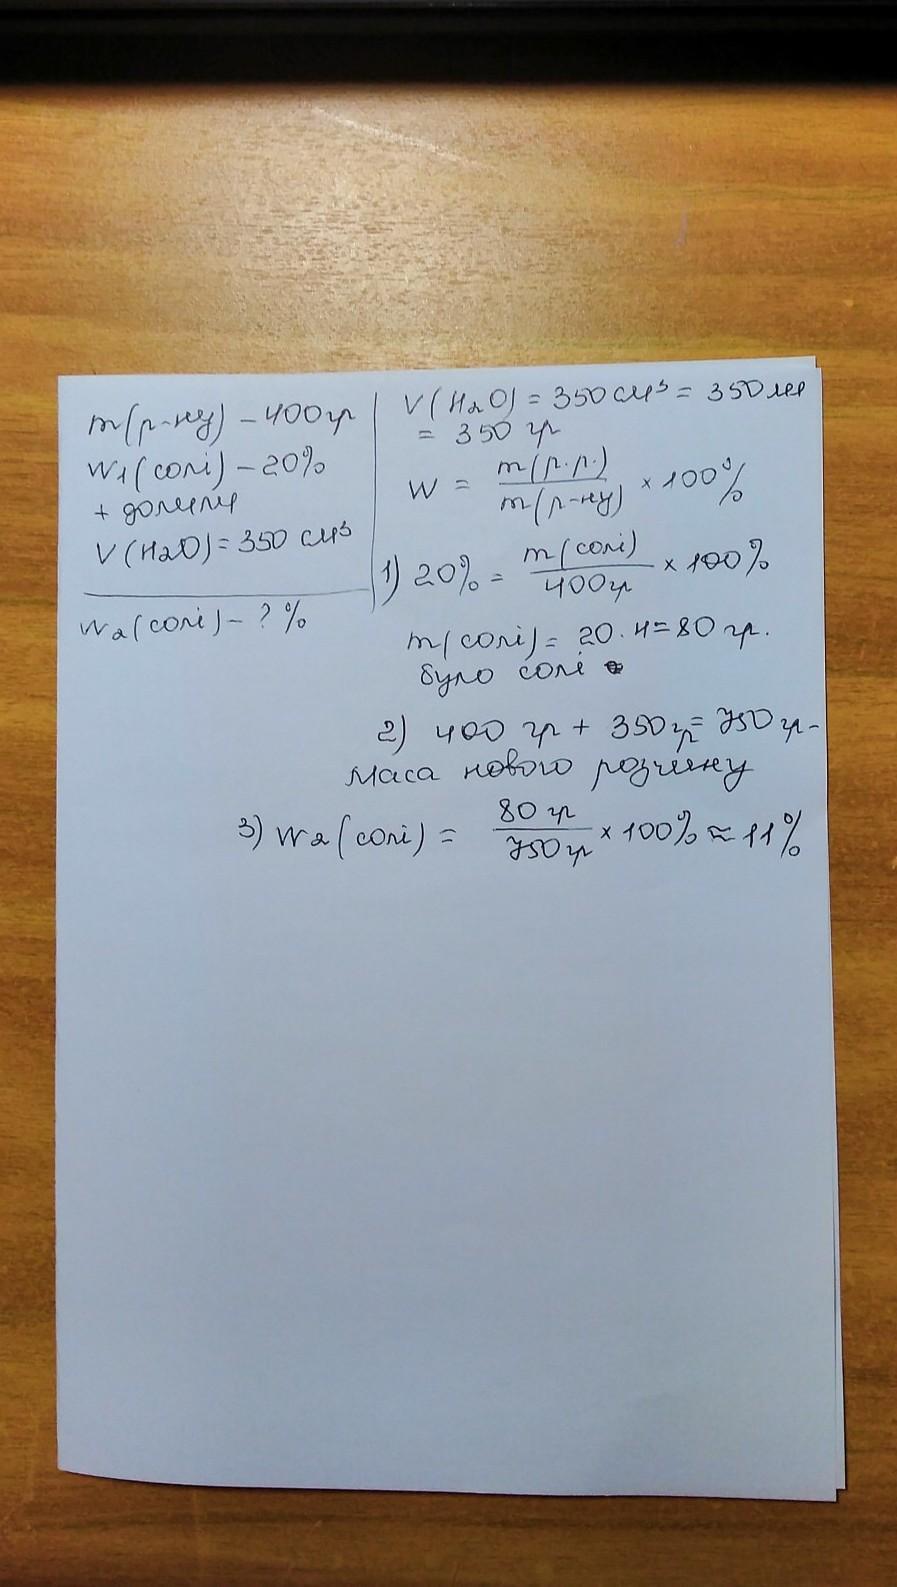 m(р-ну) - 400гр
W1(солі) - 20%
+ долили
V(H2O) = 350 см³
W2(солі) - ? %
V(H2O) = 350 см³ = 350 мл
= 350 гр
W = m(р.р.) / m(р-ну) × 100%
1) 20% = m(солі) / 400гр × 100%
m(солі) = 20 · 4 = 80 гр.
було солі
2) 400 гр + 350 гр = 750 гр -
маса нового розчину
3) W2(солі) = 80 гр / 750 гр × 100% ≈ 11%